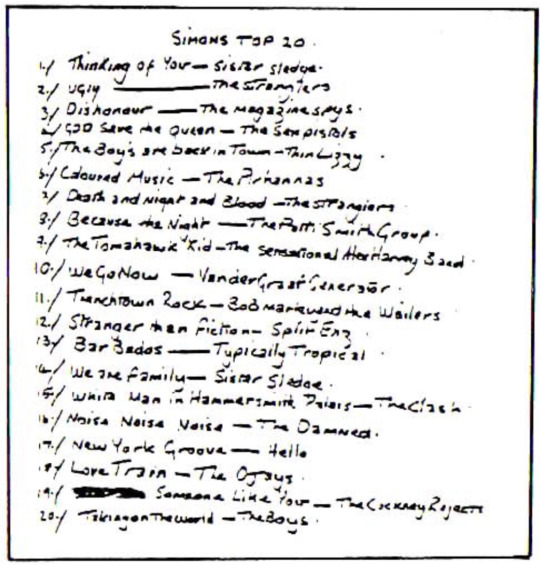 SIMONS TOP 20.
1./ Thinking of You — Sister Sledge.
2./ Ugly — The Stranglers
3./ Dishonour — The Magazine spys.
4/ GOD Save the Queen — The Sex pistols
5./ The Boy's are back in Town — Thin Lizzy
6/ Coloured Music — The Pirhannas
7/ Death and Night and Blood — The Stranglers
8./ Because the Night — The Patti Smith Group.
9./ The Tomahawk Kid — The Sensational Alex Harvey Band
10./ We Go Now — Vander Graaf Generator.
11./ Trenchtown Rock — Bob Marley and the Wailers
12./ Stranger than Fiction — Split Enz
13./ Bar Bados — Typically Tropical
14/ We are Family — Sister Sledge.
15/ White Man in Hammersmith Palais — The Clash.
16./ Noise Noise Noise — The Damned.
17./ New York Groove — Hello
18/ Love Train — The Ojays.
19./ Someone Like You — The Cockney Rejects
20./ Taking on The World — The Boys.